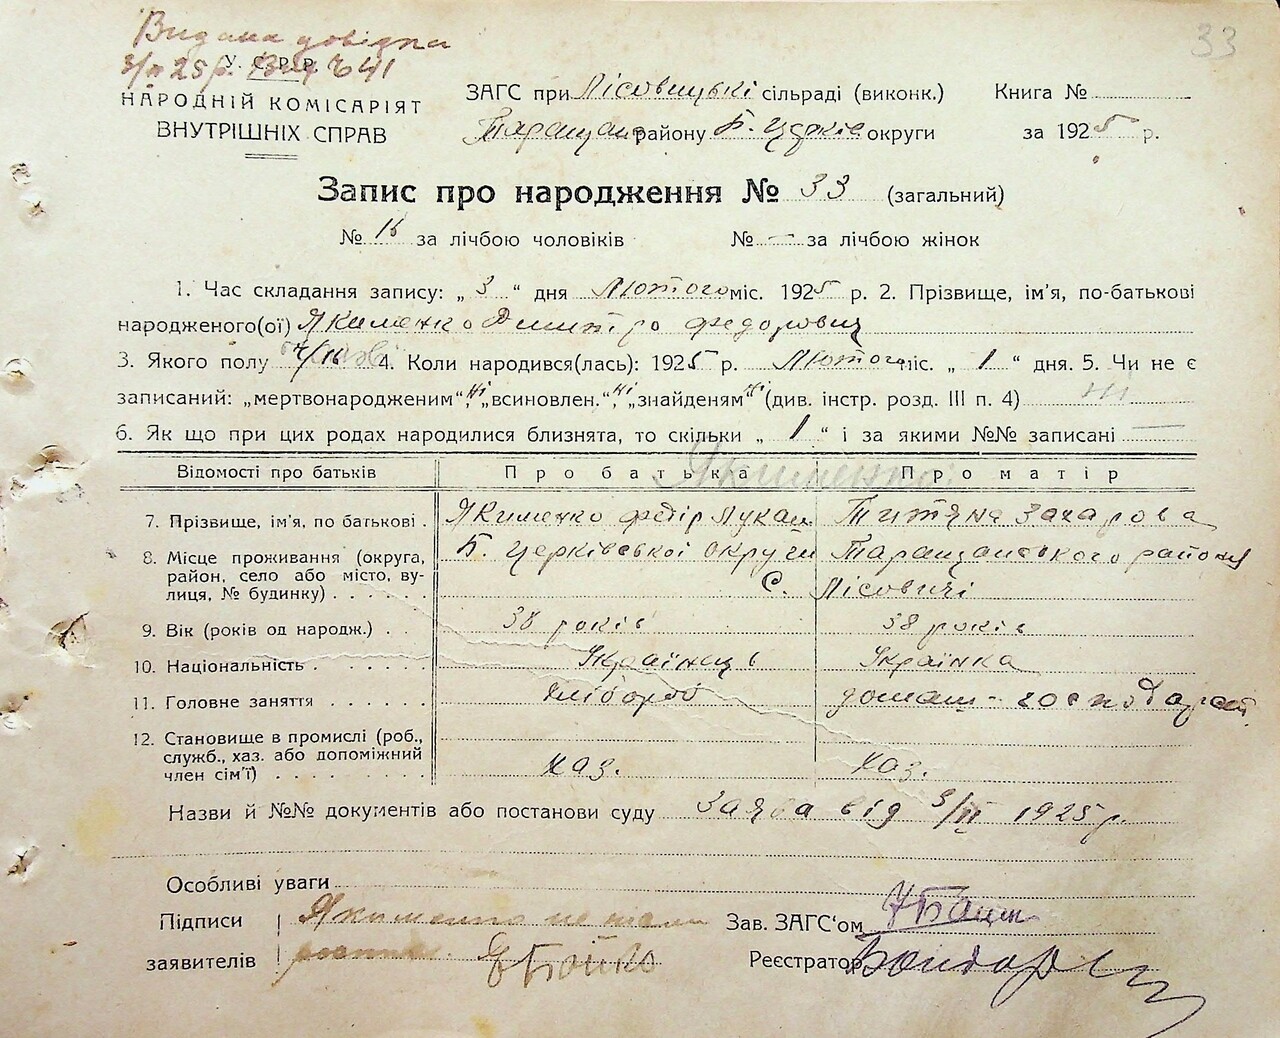 Видана довідка
33
У. С. Р. Р.
3/II 25 р.
НАРОДНІЙ КОМІСАРІЯТ
ВНУТРІШНІХ СПРАВ
ЗАГС при Лісовицькі сільраді (виконк.) Книга №
Таращан. району Б. Церків округи за 1925 р.
Запис про народження № 33 (загальний)
№ 16 за лічбою чоловіків № — за лічбою жінок
1. Час складання запису: „ 3 “ дня Лютого міс. 1925 р. 2. Прізвище, ім'я, по-батькові
народженого(ої) Якименко Дмитро Федорович
3. Якого полу 4. Коли народився(лась): 1925 р. Лютого міс. „ 1 “ дня. 5. Чи не є
записаний: „мертвонародженим“, ні „всиновлен.“, ні „знайденям“ ні (див. інстр. розд. III п. 4) ні
6. Як що при цих родах народилися близнята, то скільки „ 1 “ і за якими №№ записані —
Якименко
Відомості про батьків Про батька Про матір
7. Прізвище, ім'я, по батькові . Якименко Федір Лукаш Титяна Захарова
8. Місце проживання (округа, Б. Церківської округи Таращанського района
район, село або місто, ву-
лиця, № будинку) . . . . . . с. Лісовичі
9. Вік (років од народж.) . . 38 років 38 років
10. Національність . . . . . . Українець Українка
11. Головне заняття . . . . . . хлібороб домаш-господарст.
12. Становище в промислі (роб.,
служб., хаз. або допоміжний
член сім'ї) . . . . . . . . . хаз. хаз.
Назви й №№ документів або постанови суду Заява від 3/II 1925 р.
Особливі уваги
Підписи Якименко Зав. ЗАГС'ом
заявителів Бойко Реєстратор